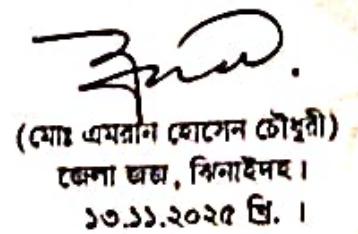 (মোঃ এমরান হোসেন চৌধুরী)
জেলা জজ, ঝিনাইদহ।
১৩.১১.২০২৫ খ্রি. ।